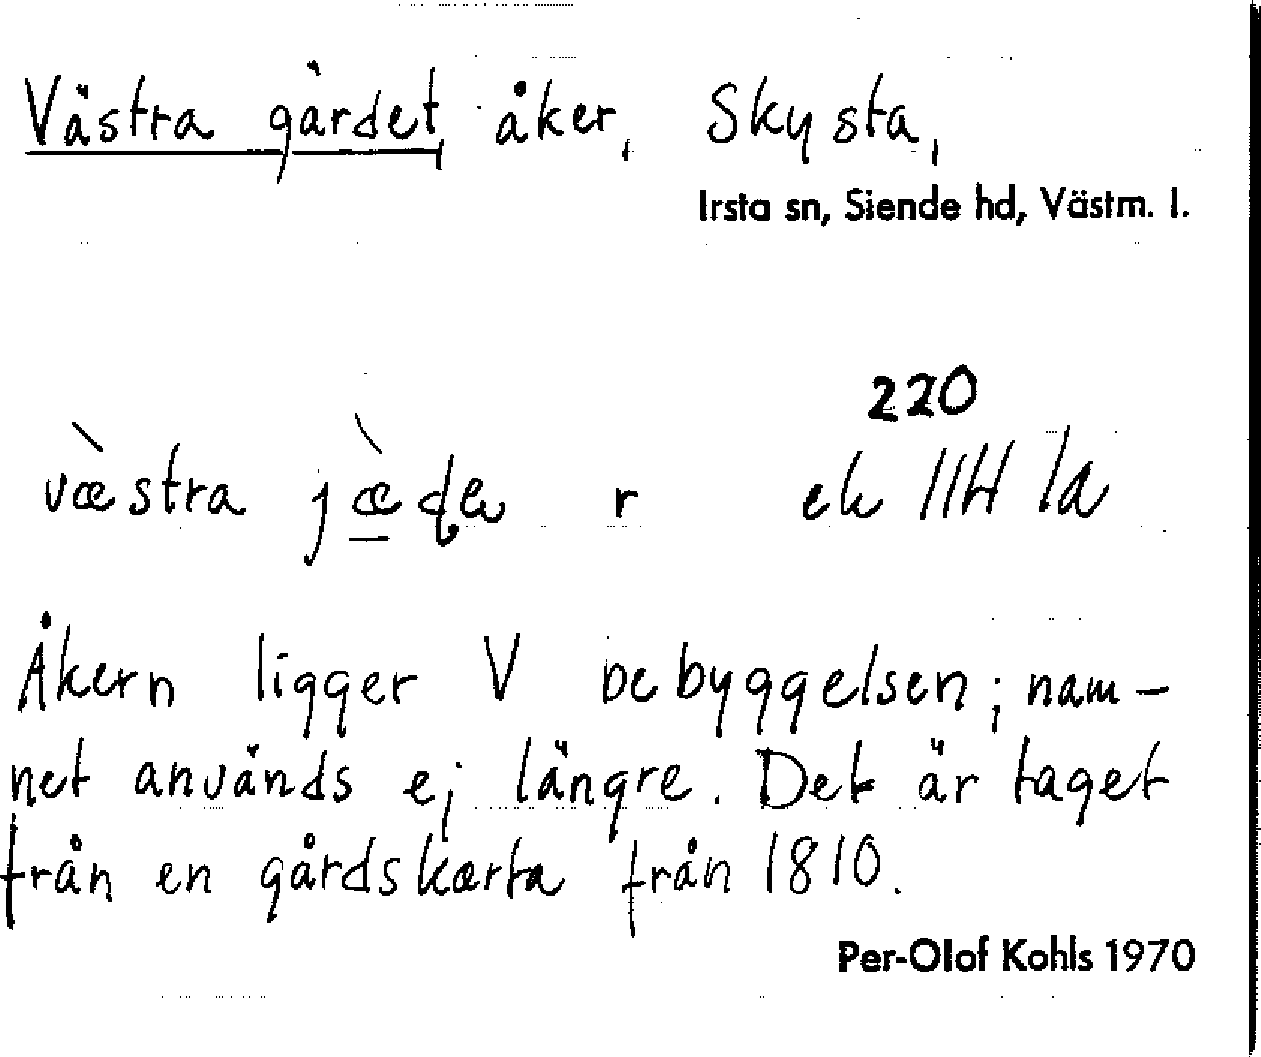 Västra gärdet, åker, Skysta,
Irsta sn, Siende hd, Västm. l.
220
væ̀stra jæ̀ḍe r ek 11H 1a
Åkern ligger V bebyggelsen; nam-
net används ej längre. Det är taget
från en gårdskarta från 1810.
Per-Olof Kohls 1970